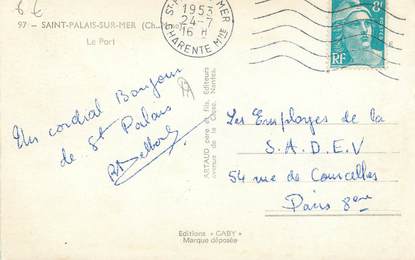 6 €
97 - SAINT-PALAIS-SUR-MER (Ch.
Le Port
1953
24-7
16 H
CHARENTE Mme
8F
POSTES
RF
Un cordial Bonjour
de St Palais
ARTAUD père et fils, Editeurs
avenue de la Close, Nantes.
Les Employes de la
S.A.D.E.V
54 rue de Courcelles
Paris 8eme
Editions « GABY »
Marque déposée